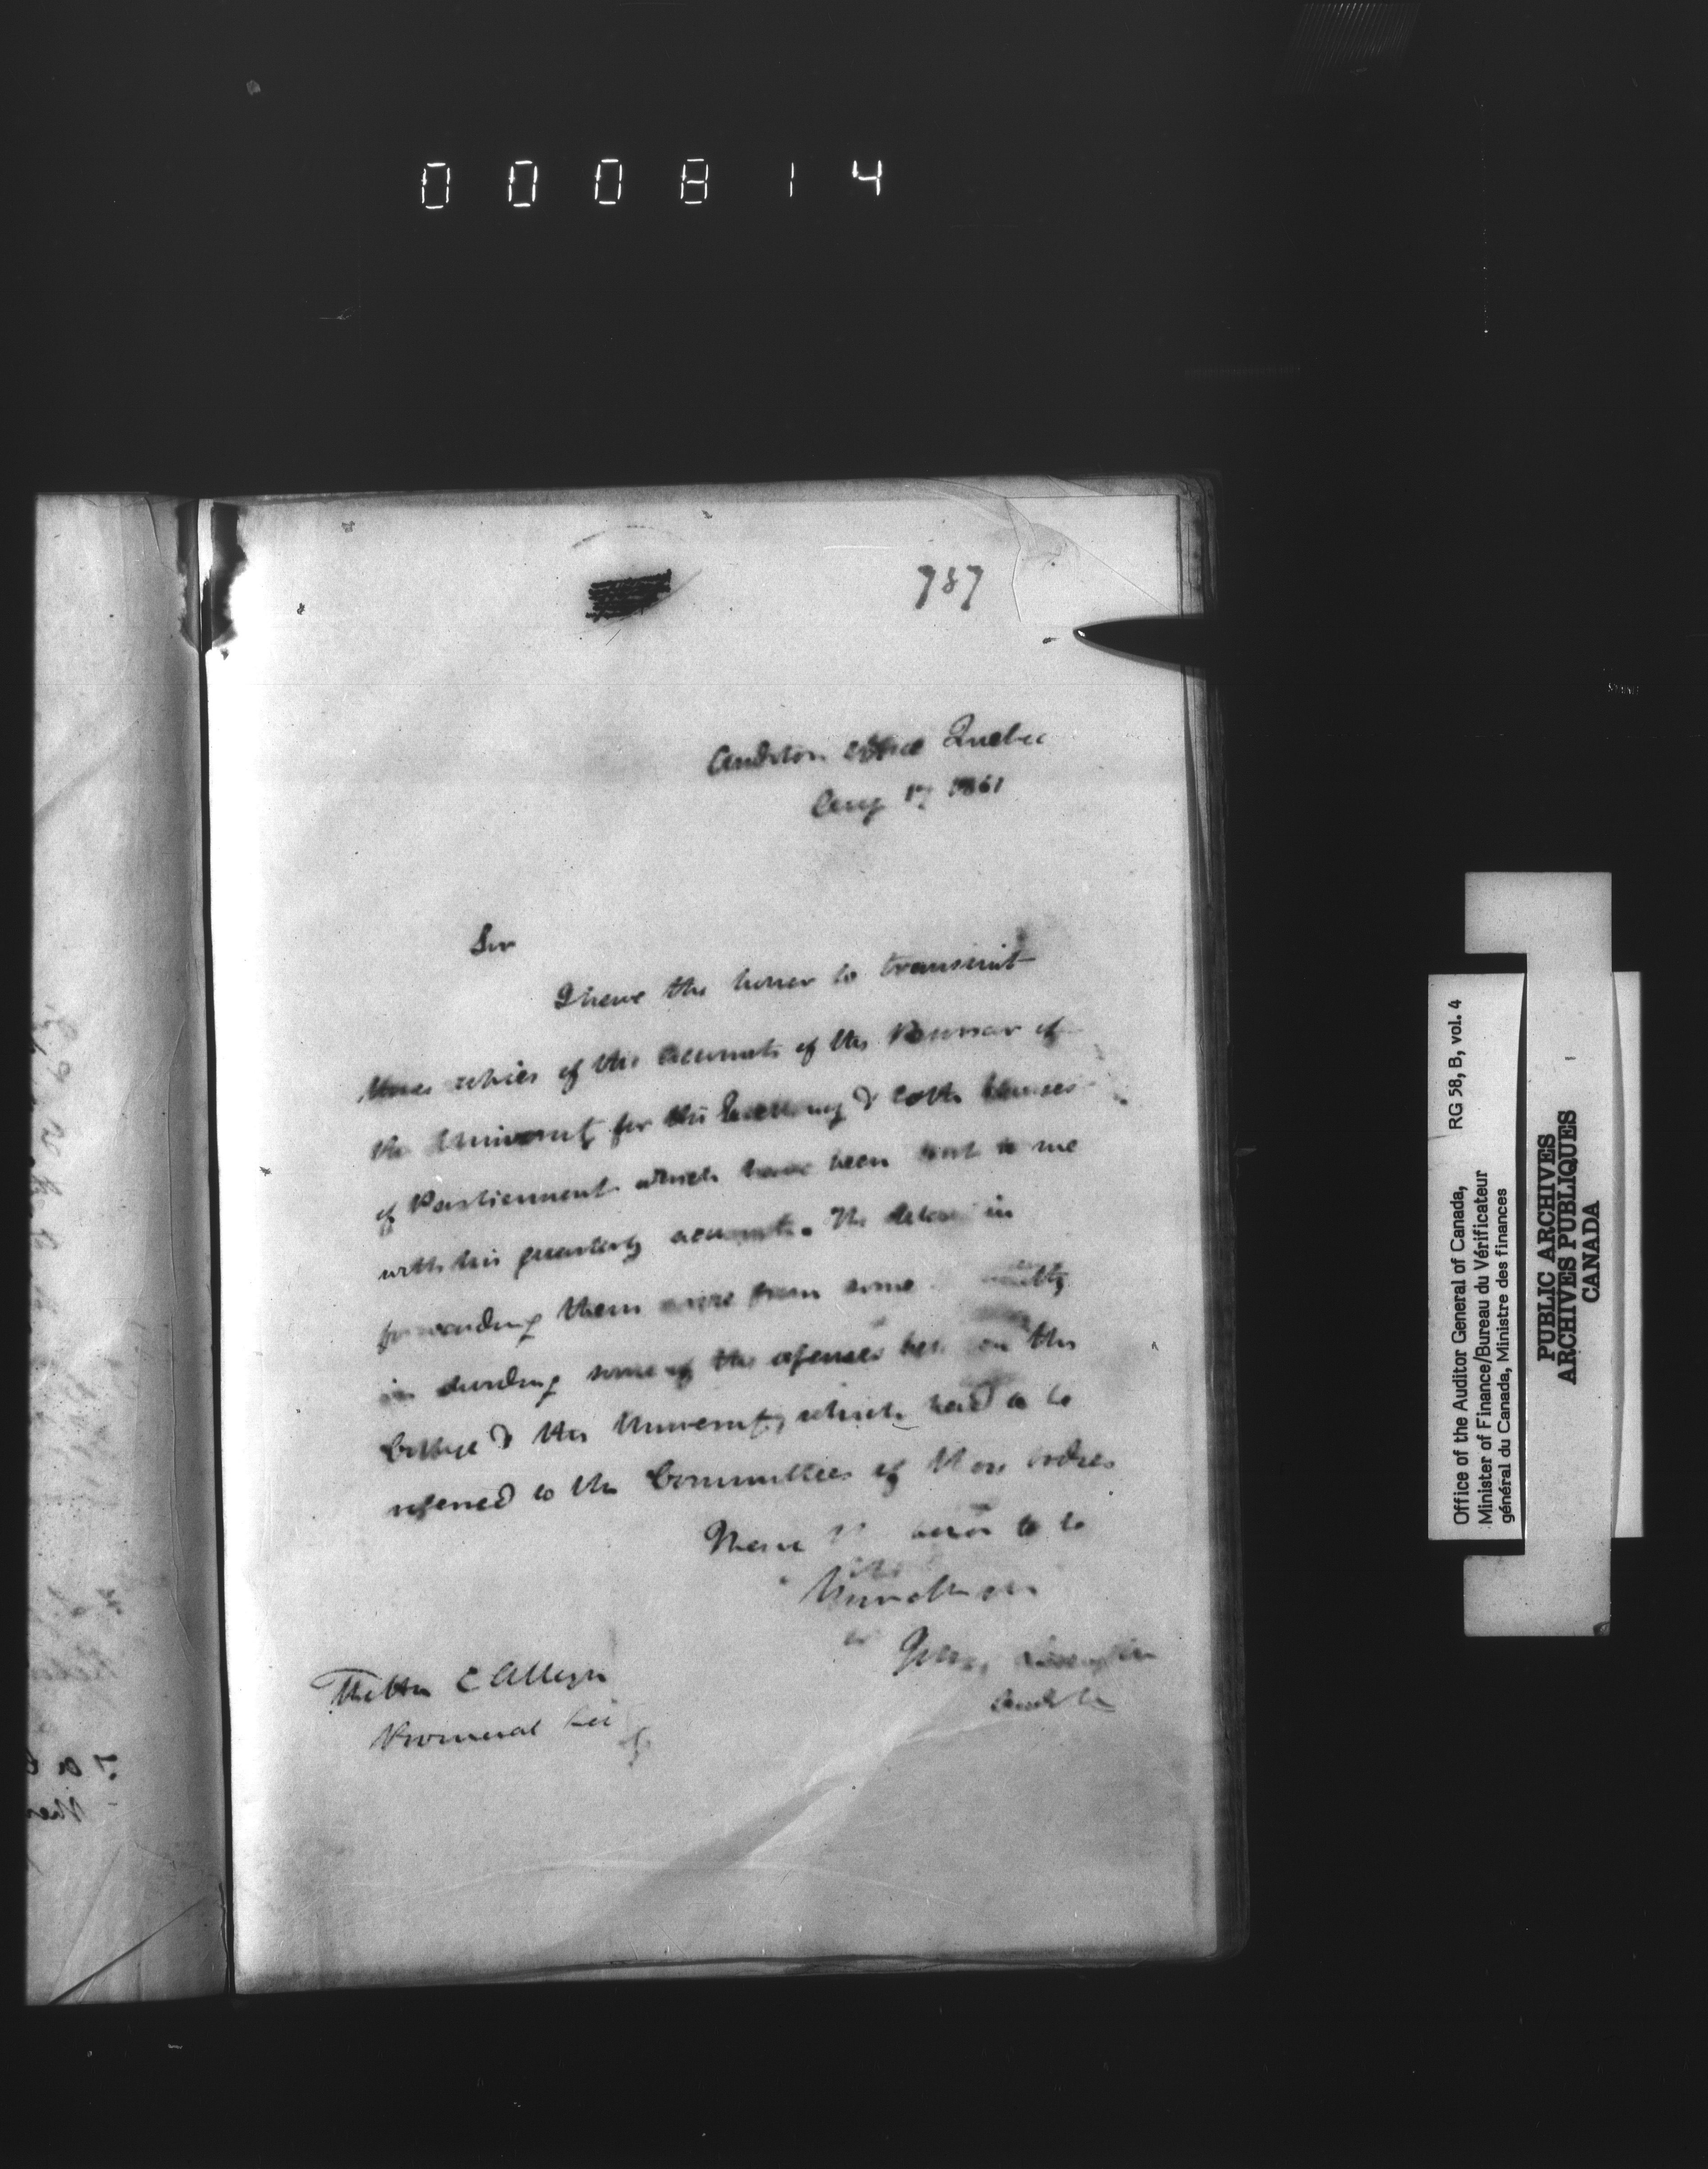 000814
787
Auditors Office Quebec
Aug 17 1861
Sir
I have the honor to transmit
three copies of the accounts of the Bursar of
the University for His Excellency & both Houses
of Parliament which have been sent to me
with his quarterly accounts. The delay in
forwarding them arose from some difficulty
in dividing some of the expenses between the
College & the University, which had to be
referred to the Committees of those bodies
I have the honor to be
Your
Auditor
The Hon C Alleyn
Provincial Sec
Office of the Auditor General of Canada, RG 58, B, vol. 4
Minister of Finance/Bureau du Vérificateur
général du Canada, Ministre des finances
PUBLIC ARCHIVES
ARCHIVES PUBLIQUES
CANADA